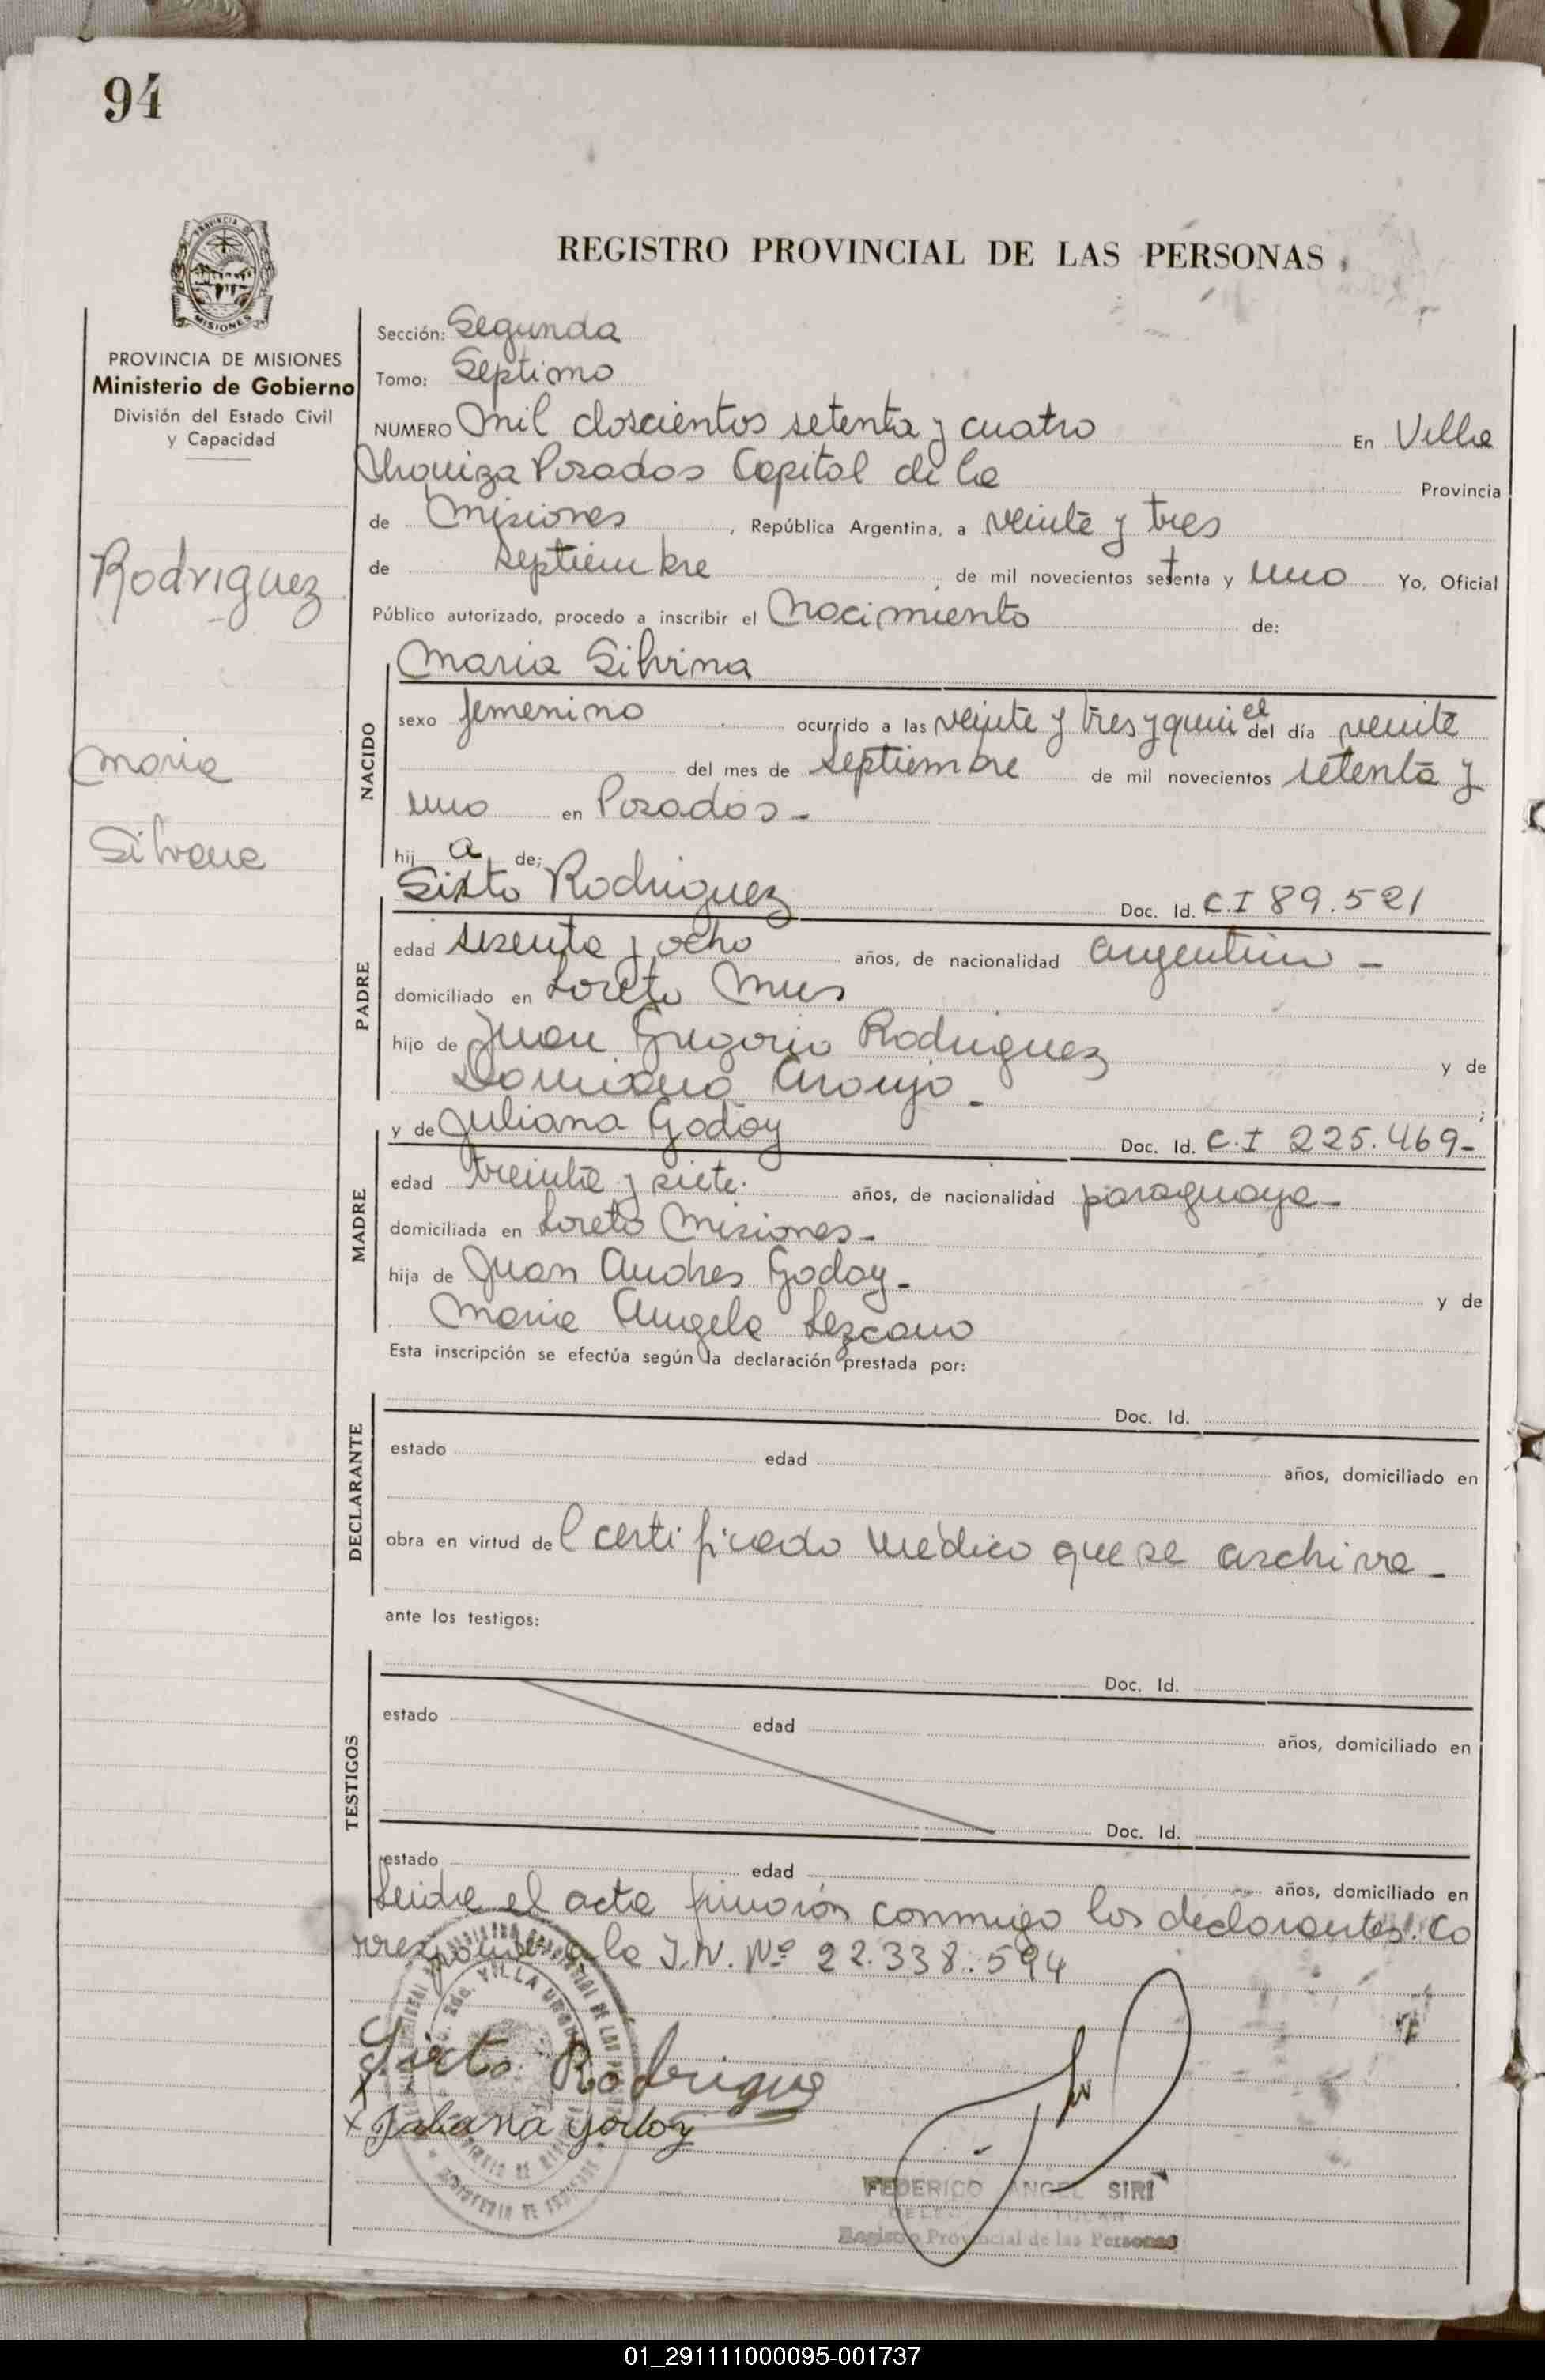 94
REGISTRO PROVINCIAL DE LAS PERSONAS
PROVINCIA
MISIONES
PROVINCIA DE MISIONES
Ministerio de Gobierno
División del Estado Civil
y Capacidad
Rodriguez
Maria
Silvana
Sección: Segunda
Tomo: Septimo
NUMERO Mil doscientos setenta y cuatro En Villa
Urquiza Posadas Capital de la Provincia
de Misiones, República Argentina, a veinte y tres
de septiembre de mil novecientos setenta y uno Yo, Oficial
Público autorizado, procedo a inscribir el Nacimiento de:
NACIDO
Maria Silvina
sexo femenino ocurrido a las veinte y tres y quin el del día veinte
del mes de septiembre de mil novecientos setenta y
uno en Posadas -
hij a de:
PADRE
Sixto Rodriguez Doc. Id. C.I 89.521
edad sesenta y ocho años, de nacionalidad argentino -
domiciliado en Loreto Mnes
hijo de Juan Gregorio Rodriguez y de
Araujo - ;
MADRE
y de Juliana Godoy Doc. Id. C.I 225.469-
edad treinta y siete. años, de nacionalidad paraguaya -
domiciliada en Loreto Misiones -
hija de Juan Andres Godoy - y de
Maria Angela Lezcano
Esta inscripción se efectúa según la declaración prestada por:
DECLARANTE
Doc. Id.
estado edad años, domiciliado en
obra en virtud del certificado médico que se archiva -
ante los testigos:
TESTIGOS
Doc. Id.
estado edad años, domiciliado en
Doc. Id.
estado edad años, domiciliado en
Leida el acta firmaron conmigo los declarantes. Co
rresponde a la I.N. Nº 22.338.594
Sixto Rodrigue
x Juliana godoy
FEDERICO ANGEL SIRI
Registro Provincial de las Personas
01_291111000095-001737